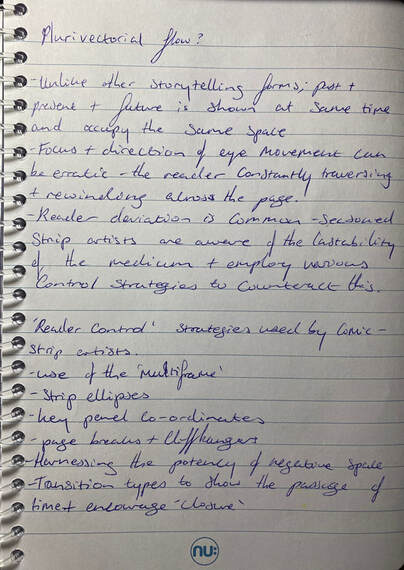 Plurivectorial flow?
-Unlike other storytelling forms; past +
present + future is shown at same time
and occupy the same space
-Focus + direction of eye movement can
be erratic - the reader constantly traversing
+ rewinding across the page.
-Reader deviation is common - seasoned
strip artists are aware of the
of the medium + employ various
control strategies to counteract this.
'Reader Control' strategies used by comic-
strip artists.
-use of the 'Multiframe'
-Strip ellipses
-key panel co-ordinates
-page breaks + cliffhangers
-Harnessing the potency of negative space
-Transition types to show the passage of
time + encourage 'closure'
nu: